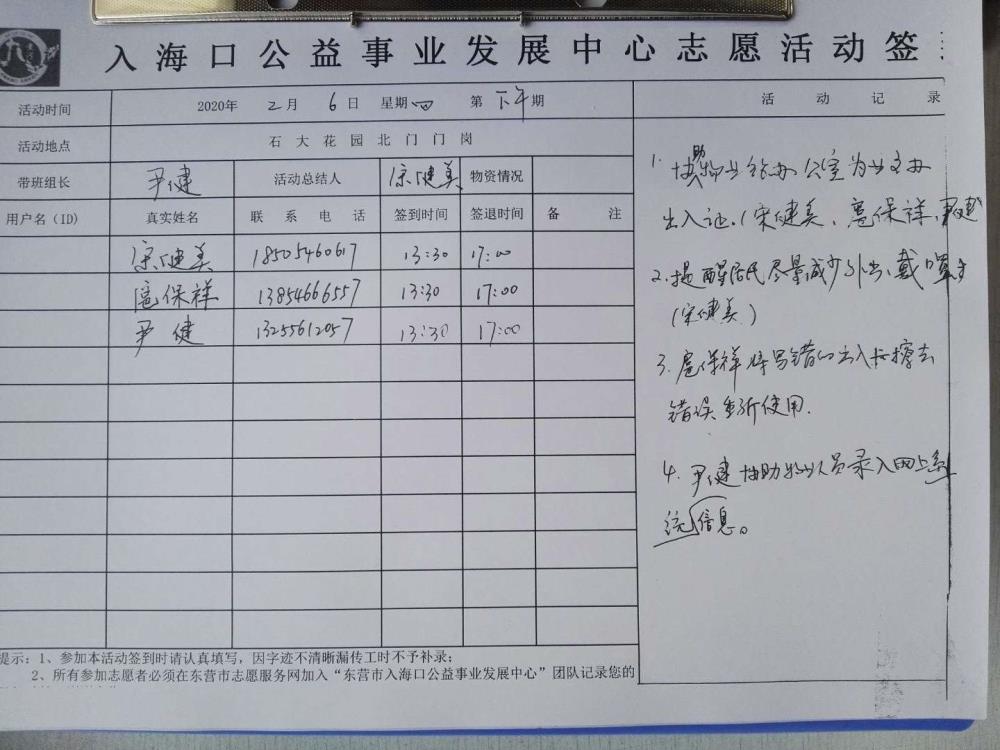 入海口公益事业发展中心志愿活动签
活动时间 2020年 2月 6日 星期四 第下午期 活动记录
活动地点 石大花园北门门岗
带班组长 尹健 活动总结人 宋健美 物资情况
用户名（ID） 真实姓名 联系电话 签到时间 签退时间 备注
宋健美 18505460617 13:30 17:00
扈保祥 13854666557 13:30 17:00
尹健 13255612057 13:30 17:00
1. 协助物业给办公室为业主办
出入证.（宋健美、扈保祥、尹健
2. 提醒居民尽量减少外出、戴口罩
（宋健美）
3. 扈保祥将写错的出入证擦去
错误重新使用.
4. 尹健协助物业人员录入网上系
统信息。
提示：1、参加本活动签到时请认真填写，因字迹不清晰漏传工时不予补录；
2、所有参加志愿者必须在东营市志愿服务网加入“东营市入海口公益事业发展中心”团队记录您的